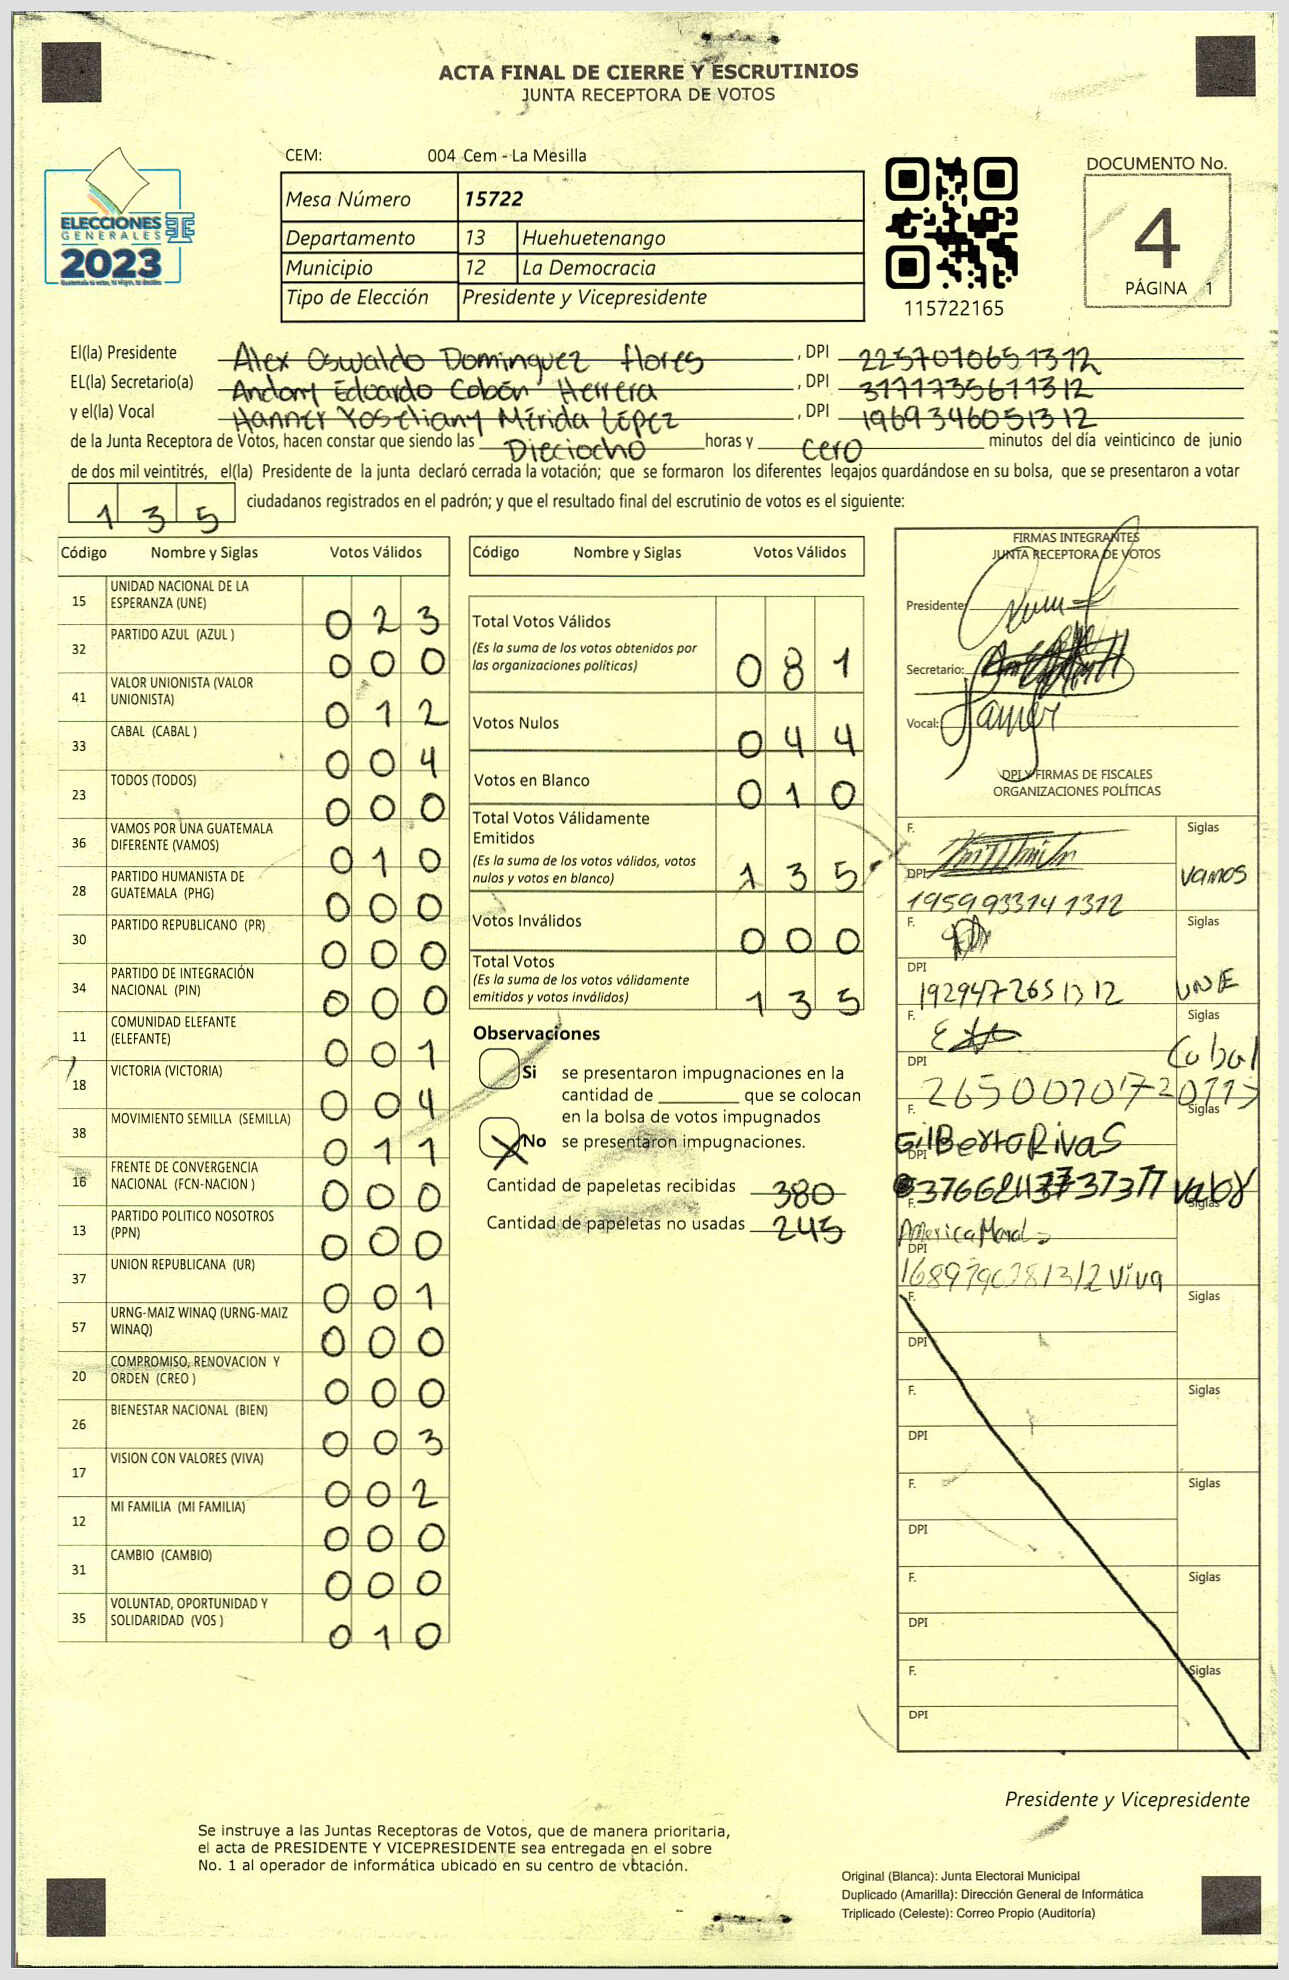 ACTA FINAL DE CIERRE Y ESCRUTINIOS
JUNTA RECEPTORA DE VOTOS
CEM: 004 Cem - La Mesilla
Mesa Número 15722
Departamento 13 Huehuetenango
Municipio 12 La Democracia
Tipo de Elección Presidente y Vicepresidente
ELECCIONES
GENERALES
2023
115722165
DOCUMENTO No.
4
PÁGINA 1
El(la) Presidente Alex Oswaldo Dominguez flores, DPI 2257010651312
EL(la) Secretario(a) Andony Edoardo Cobón Herrera, DPI 3177735671312
y el(la) Vocal Hanner Yoseliany Mérida López, DPI 1969346051312
de la Junta Receptora de Votos, hacen constar que siendo las Dieciocho horas y cero minutos del día veinticinco de junio
de dos mil veintitrés, el(la) Presidente de la junta declaró cerrada la votación; que se formaron los diferentes legajos guardándose en su bolsa, que se presentaron a votar
135 ciudadanos registrados en el padrón; y que el resultado final del escrutinio de votos es el siguiente:
Código Nombre y Siglas Votos Válidos
15 UNIDAD NACIONAL DE LA ESPERANZA (UNE) 023
32 PARTIDO AZUL (AZUL ) 000
41 VALOR UNIONISTA (VALOR UNIONISTA) 012
33 CABAL (CABAL ) 004
23 TODOS (TODOS) 000
36 VAMOS POR UNA GUATEMALA DIFERENTE (VAMOS) 010
28 PARTIDO HUMANISTA DE GUATEMALA (PHG) 000
30 PARTIDO REPUBLICANO (PR) 000
34 PARTIDO DE INTEGRACIÓN NACIONAL (PIN) 000
11 COMUNIDAD ELEFANTE (ELEFANTE) 001
18 VICTORIA (VICTORIA) 004
38 MOVIMIENTO SEMILLA (SEMILLA) 011
16 FRENTE DE CONVERGENCIA NACIONAL (FCN-NACION ) 000
13 PARTIDO POLITICO NOSOTROS (PPN) 000
37 UNION REPUBLICANA (UR) 001
57 URNG-MAIZ WINAQ (URNG-MAIZ WINAQ) 000
20 COMPROMISO, RENOVACION Y ORDEN (CREO ) 000
26 BIENESTAR NACIONAL (BIEN) 003
17 VISION CON VALORES (VIVA) 002
12 MI FAMILIA (MI FAMILIA) 000
31 CAMBIO (CAMBIO) 000
35 VOLUNTAD, OPORTUNIDAD Y SOLIDARIDAD (VOS ) 010
Código Nombre y Siglas Votos Válidos
Total Votos Válidos 081
(Es la suma de los votos obtenidos por
las organizaciones políticas)
Votos Nulos 044
Votos en Blanco 010
Total Votos Válidamente
Emitidos 135
(Es la suma de los votos válidos, votos
nulos y votos en blanco)
Votos Inválidos 000
Total Votos 135
(Es la suma de los votos válidamente
emitidos y votos inválidos)
Observaciones
Si se presentaron impugnaciones en la
cantidad de ________ que se colocan
en la bolsa de votos impugnados
No se presentaron impugnaciones.
Cantidad de papeletas recibidas 380
Cantidad de papeletas no usadas 245
FIRMAS INTEGRANTES
JUNTA RECEPTORA DE VOTOS
Presidente:
Secretario:
Vocal:
DPI Y FIRMAS DE FISCALES
ORGANIZACIONES POLÍTICAS
F. Siglas
DPI 1959933141312 vamos
F. Siglas
DPI 1929472651312 UNE
F. Siglas
DPI Cabal
F. GilBerto Rivas Siglas
DPI
F. Siglas
DPI Viva
F. Siglas
DPI
F. Siglas
DPI
F. Siglas
DPI
F. Siglas
DPI
F. Siglas
DPI
Presidente y Vicepresidente
Se instruye a las Juntas Receptoras de Votos, que de manera prioritaria,
el acta de PRESIDENTE Y VICEPRESIDENTE sea entregada en el sobre
No. 1 al operador de informática ubicado en su centro de votación.
Original (Blanca): Junta Electoral Municipal
Duplicado (Amarilla): Dirección General de Informática
Triplicado (Celeste): Correo Propio (Auditoría)